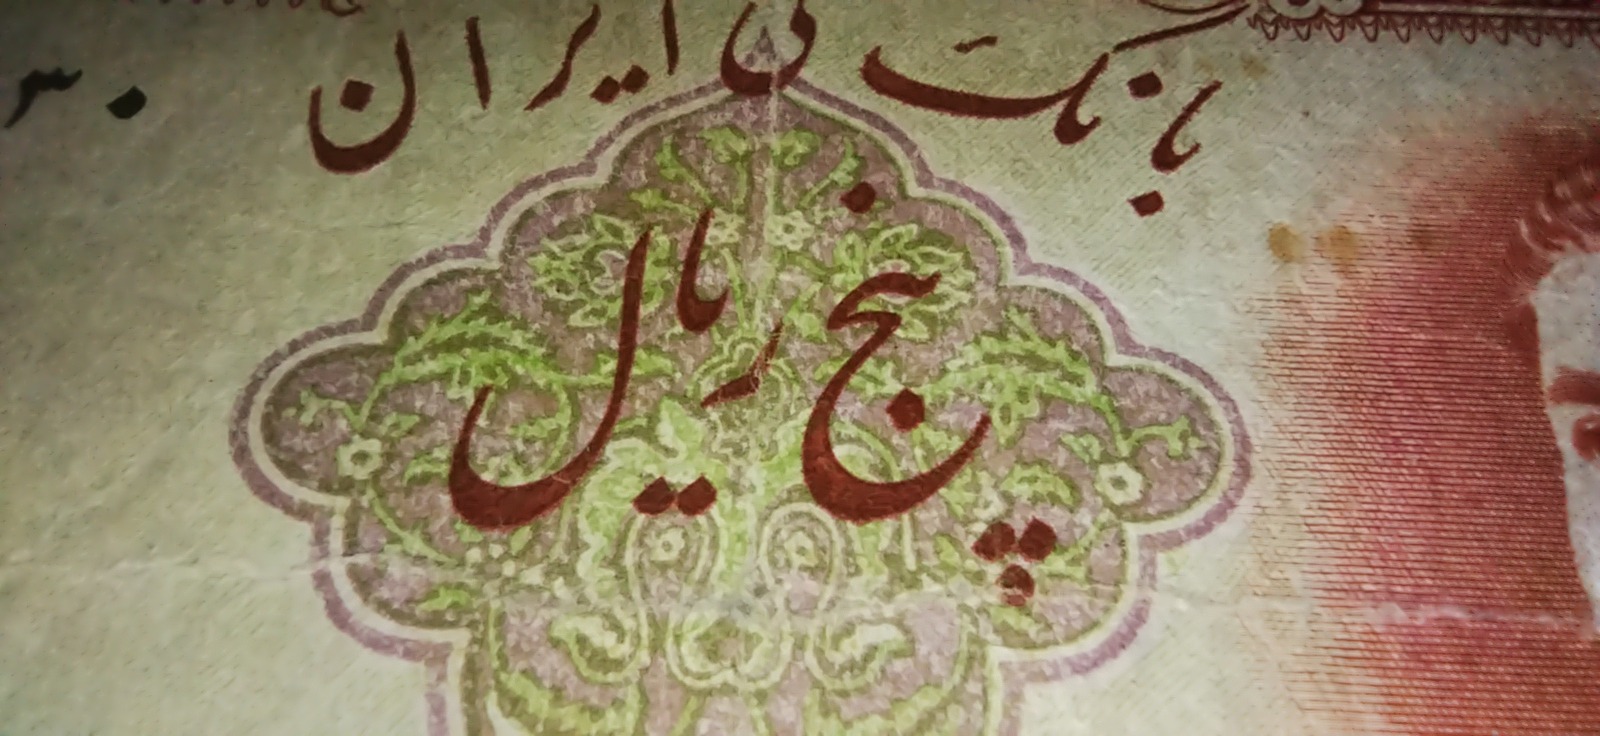 بانک ملی ایران
پنج ریال